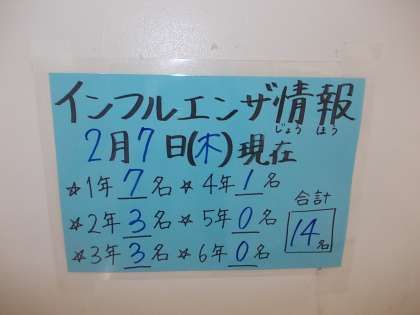 インフルエンザ情報
じょう ほう
2月7日(木)現在
☆1年 7名 ☆4年 1名
☆2年 3名 ☆5年 0名
☆3年 3名 ☆6年 0名
合計
14名